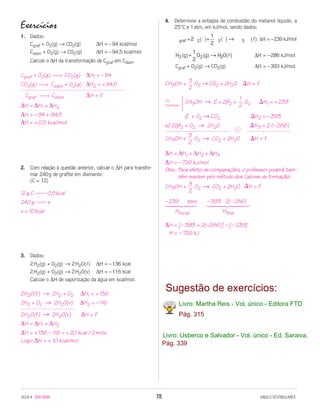 Exercícios
1. Dados:
Cgraf + O2(g) → CO2(g) ΔH = –94 kcal/mol
Cdiam + O2(g) → CO2(g) ΔH = –94,5 kcal/mol
Calcule o ΔH da transformação de Cgraf em Cdiam.
Cgraf + O2(g) → CO2(g) ΔH1 = –94
CO2(g) → Cdiam + O2(g) ΔH2 = +94,5
Cgraf → Cdiam ΔH = ?
ΔH = ΔH1 + ΔH2
ΔH = –94 + 94,5
ΔH = +0,5 kcal/mol
2. Com relação à questão anterior, calcular o ΔH para transformar 240g de grafite em diamante.
(C = 12)
12 g C —— 0,5 kcal
240 g —— x
x = 10 kcal
3. Dados:
2H2(g) + O2(g) → 2H2O(l) ΔH = –136 kcal
2H2(g) + O2(g) → 2H2O(v) ΔH = –116 kcal
Calcule o ΔH de vaporização da água em kcal/mol.
2H2O(l) → 2H2 + O2 ΔH1 = +136
2H2 + O2 → 2H2O(v) ΔH2 = –116
2H2O(l) → 2H2O(v) ΔH = ?
ΔH = ΔH1 + ΔH2
ΔH = +136 – 116 = +20 kcal / 2 mols
Logo: ΔH = + 10 kcal/mol
4. Determine a entalpia de combustão do metanol líquido, a 25°C e 1 atm, em kJ/mol, sendo dados:
graf + 2 2( )+ 1/2 2( ) → 3 (l) ΔH = –239 kJ/mol
H2(g)+ 1/2 O2(g) → H2O(l) ΔH = –286 kJ/mol
Cgraf + O2(g) → CO2(g) ΔH = –393 kJ/mol
CH3OH + 3/2 O2 → CO2 + 2H2O ΔH = ?
CH3OH → C + 2H2 + 1/2 O2 ΔH1 = +239
C + O2 → CO2 ΔH2 = –393
x2 (2H2 + O2 → 2H2O ΔH3 = 2 (–286)
CH3OH + 3/2 O2 → CO2 + 2H2O ΔH = ?
ΔH = ΔH1 + ΔH2 + ΔH3
ΔH = –726 kJ/mol
Obs.: Para efeito de comparações, o professor poderá também resolver pelo método dos Calores de formação:
CH3OH + 3/2 O2 → CO2 + 2H2O ΔH = ?
–239 zero –393 2(–286)
Hinicial Hfinal
ΔH = [–393 + 2(–286)] – [–239]
H = – 726 kJ
Sugestão de exercícios:
Livro: Martha Reis - Vol. único - Editora FTD
Pág. 315
Livro: Usberco e Salvador - Vol. único - Ed. Saraiva.
Pág. 339
78
ANGLO VESTIBULARES